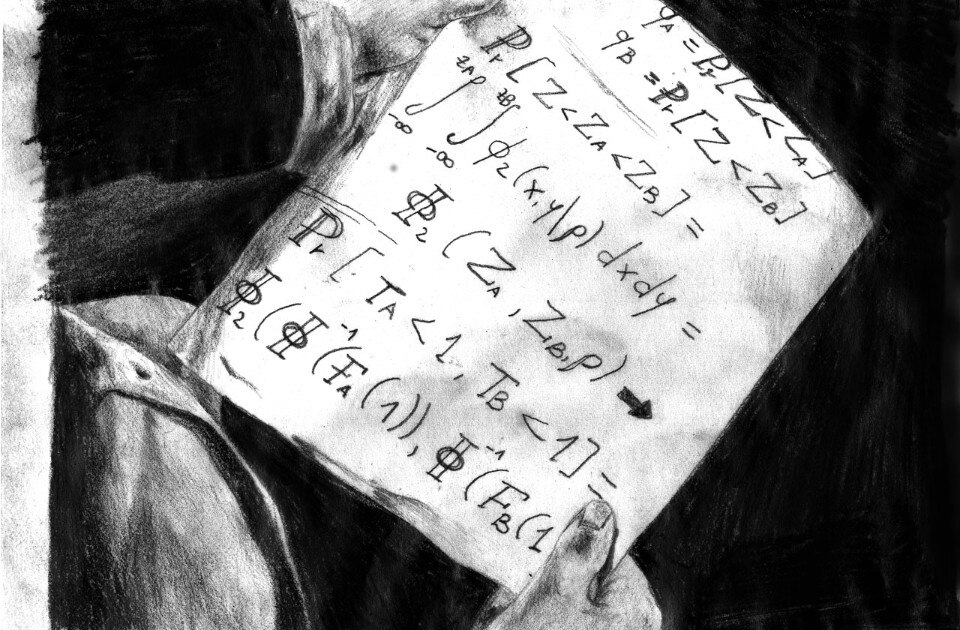 q_A = Pr[Z<Z_A]
q_B = Pr[Z<Z_B]
Pr[Z<Z_A<Z_B] =
∫_{-∞}^{z_A} ∫_{-∞}^{z_B} φ_2(x,y|ρ)dxdy =
Φ_2(Z_A, Z_B, ρ) →
Pr[T_A<1, T_B<1] =
Φ_2(Φ^{-1}(F_A(1)), Φ^{-1}(F_B(1